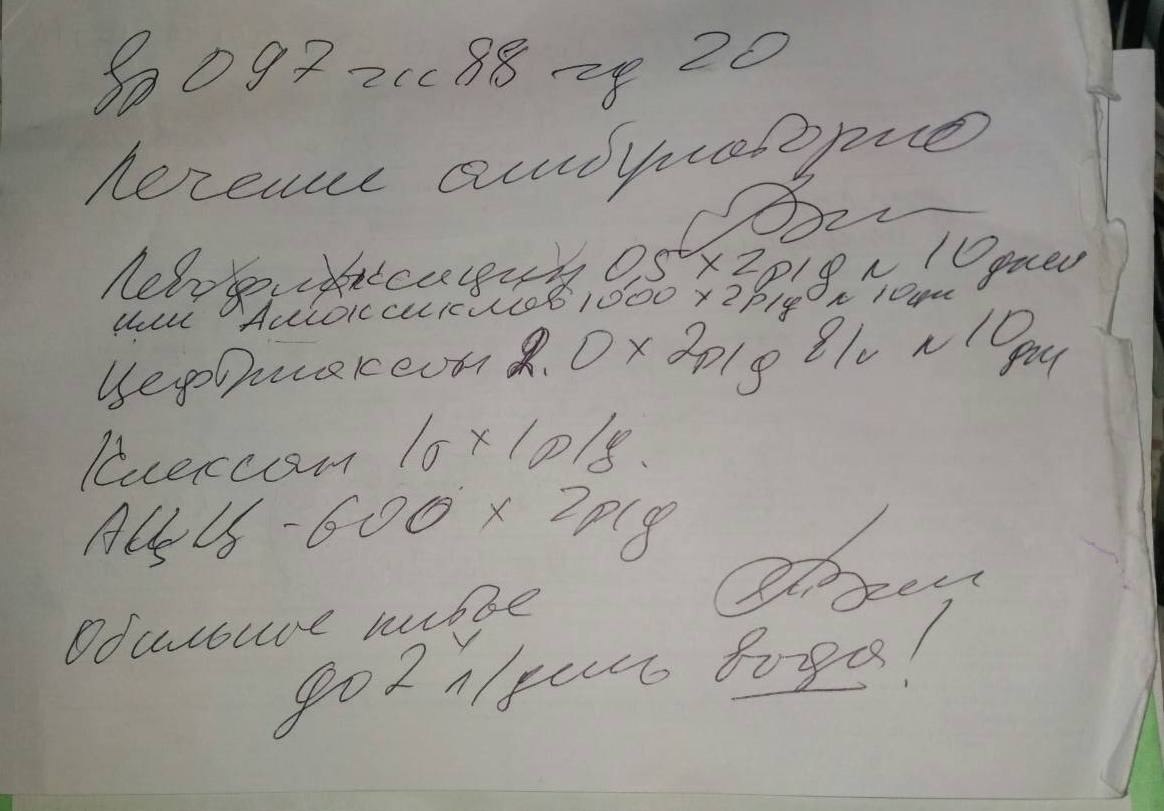 097 88 20
Лечение амбулаторно
Левофлоксацин 0,5 x 2 р/д N 10 дней
или Амоксиклав 1000 x 2 р/д N 10 дн
Цефтриаксон 2.0 x 2 р/д в/в N 10 дн
Клексан x 1 р/д.
АЦЦ - 600 x 2 р/д
Обильное питье
до 2 л/день вода!